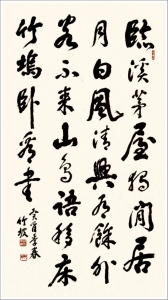 臨溪茅屋獨閒居
月白風清興有餘外
客不來山鳥語移床
竹塢臥看書
癸酉季春
竹坡